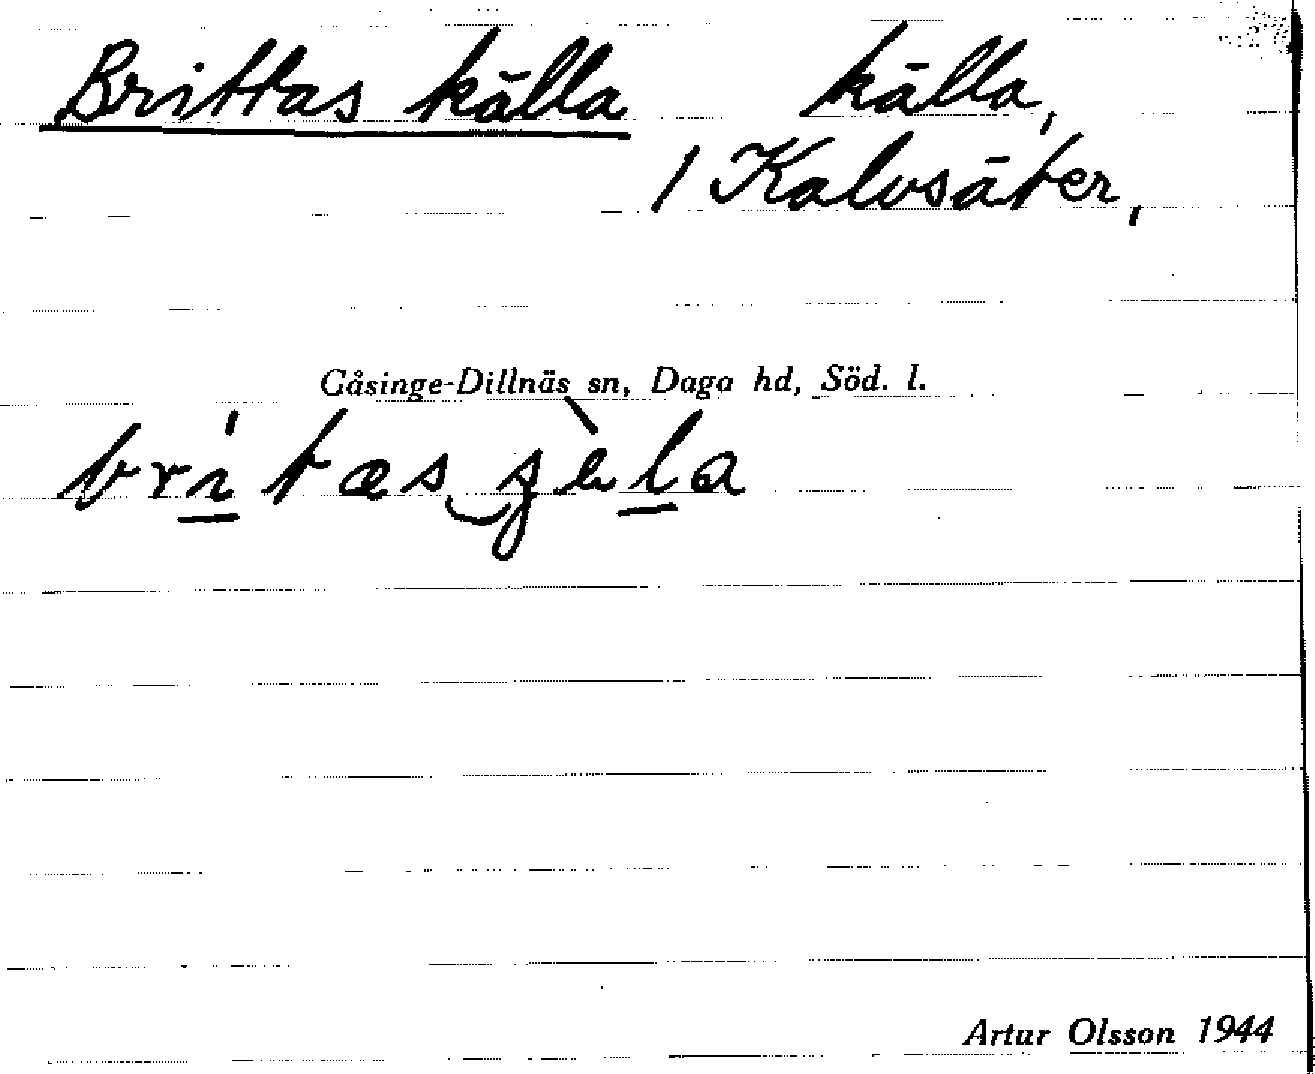 Brittas källa källa,
/ Kalvsäter,
Gåsinge-Dillnäs sn, Daga hd, Söd. l.
Artur Olsson 1944